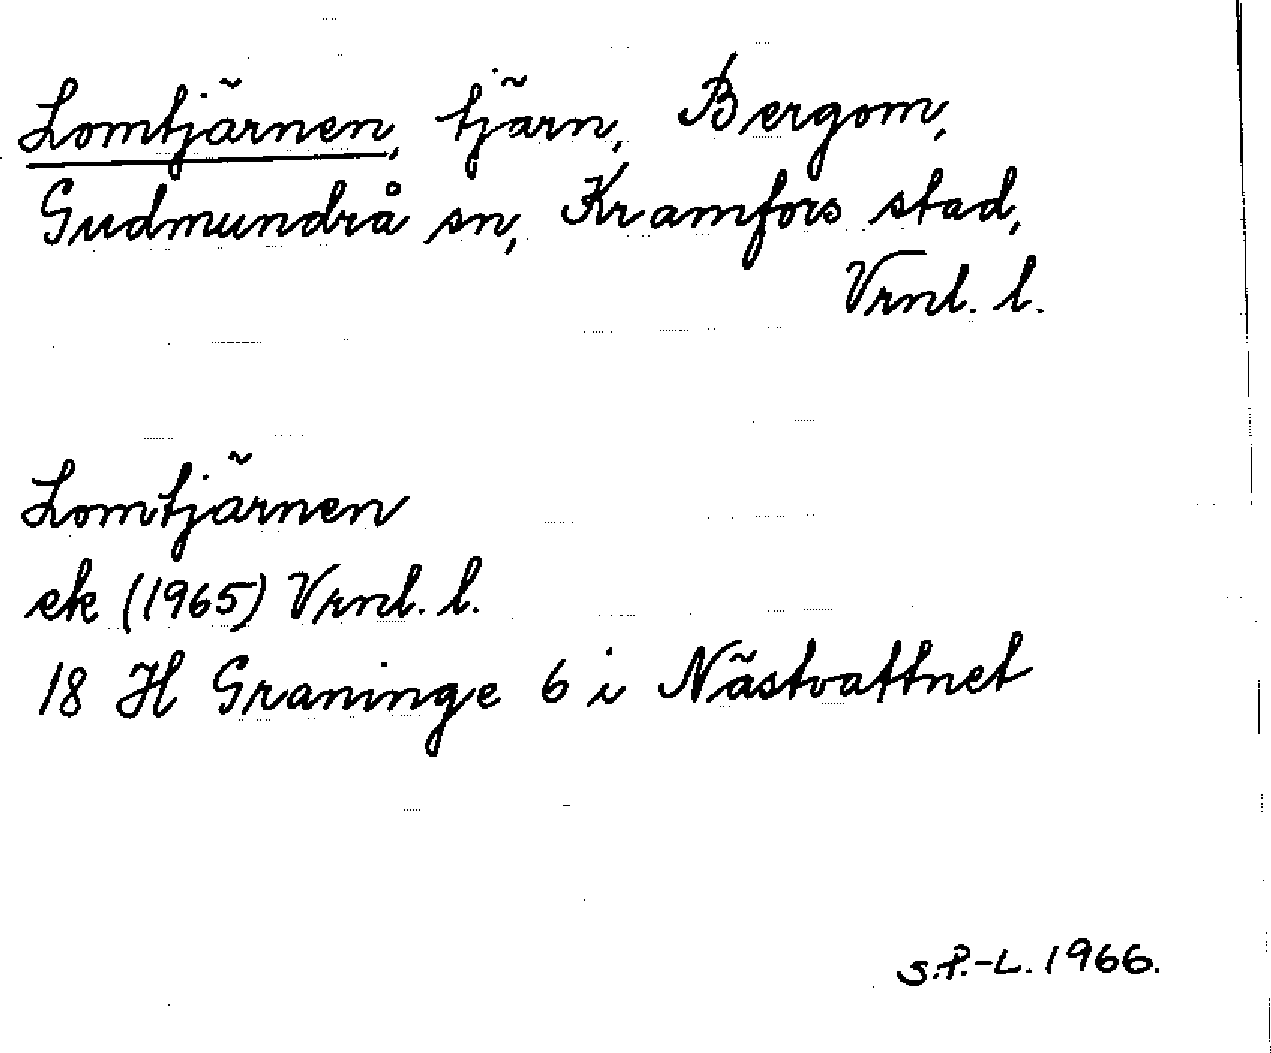 Lomtjärnen, tjärn, Bergom,
Gudmundrå sn, Kramfors stad,
Vrnl. l.
Lomtjärnen
ek (1965) Vrnl. l.
18 H Graninge 6 i Nästvattnet
S.P.-L. 1966.